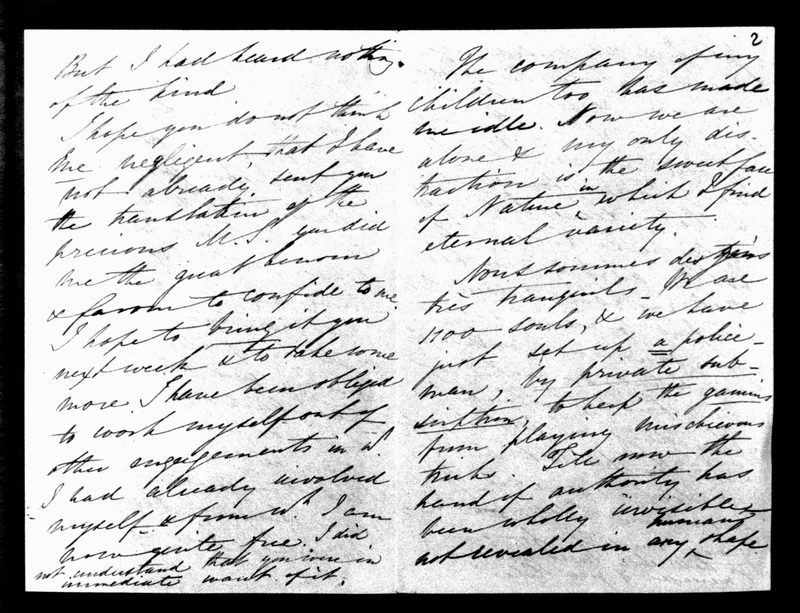 But I had heard nothing
of the kind
I hope you do not think
me negligent, that I have
not already sent you
the translation of the
precious M.S. you did
me the great honour
& favour to confide to me.
I hope to bring it you
next week & to take some
more. I have been obliged
to work myself out of
other engagements in wh.
I had already involved
myself & from wh. I am
now quite free. I did
not understand that you were in
immediate want of it.
2
The company of my
children too has made
me idle. Now we are
alone & my only dis-
traction is the sweet face
of Nature in which I find
eternal variety.
Nous sommes des gens
très tranquils - We are
1100 souls, & we have
just set up a police-
man, by private sub-
scription, to keep the gamins
from playing mischievous
tricks. Till now the
hand of authority has
been wholly invisible -
not revealed in any human shape